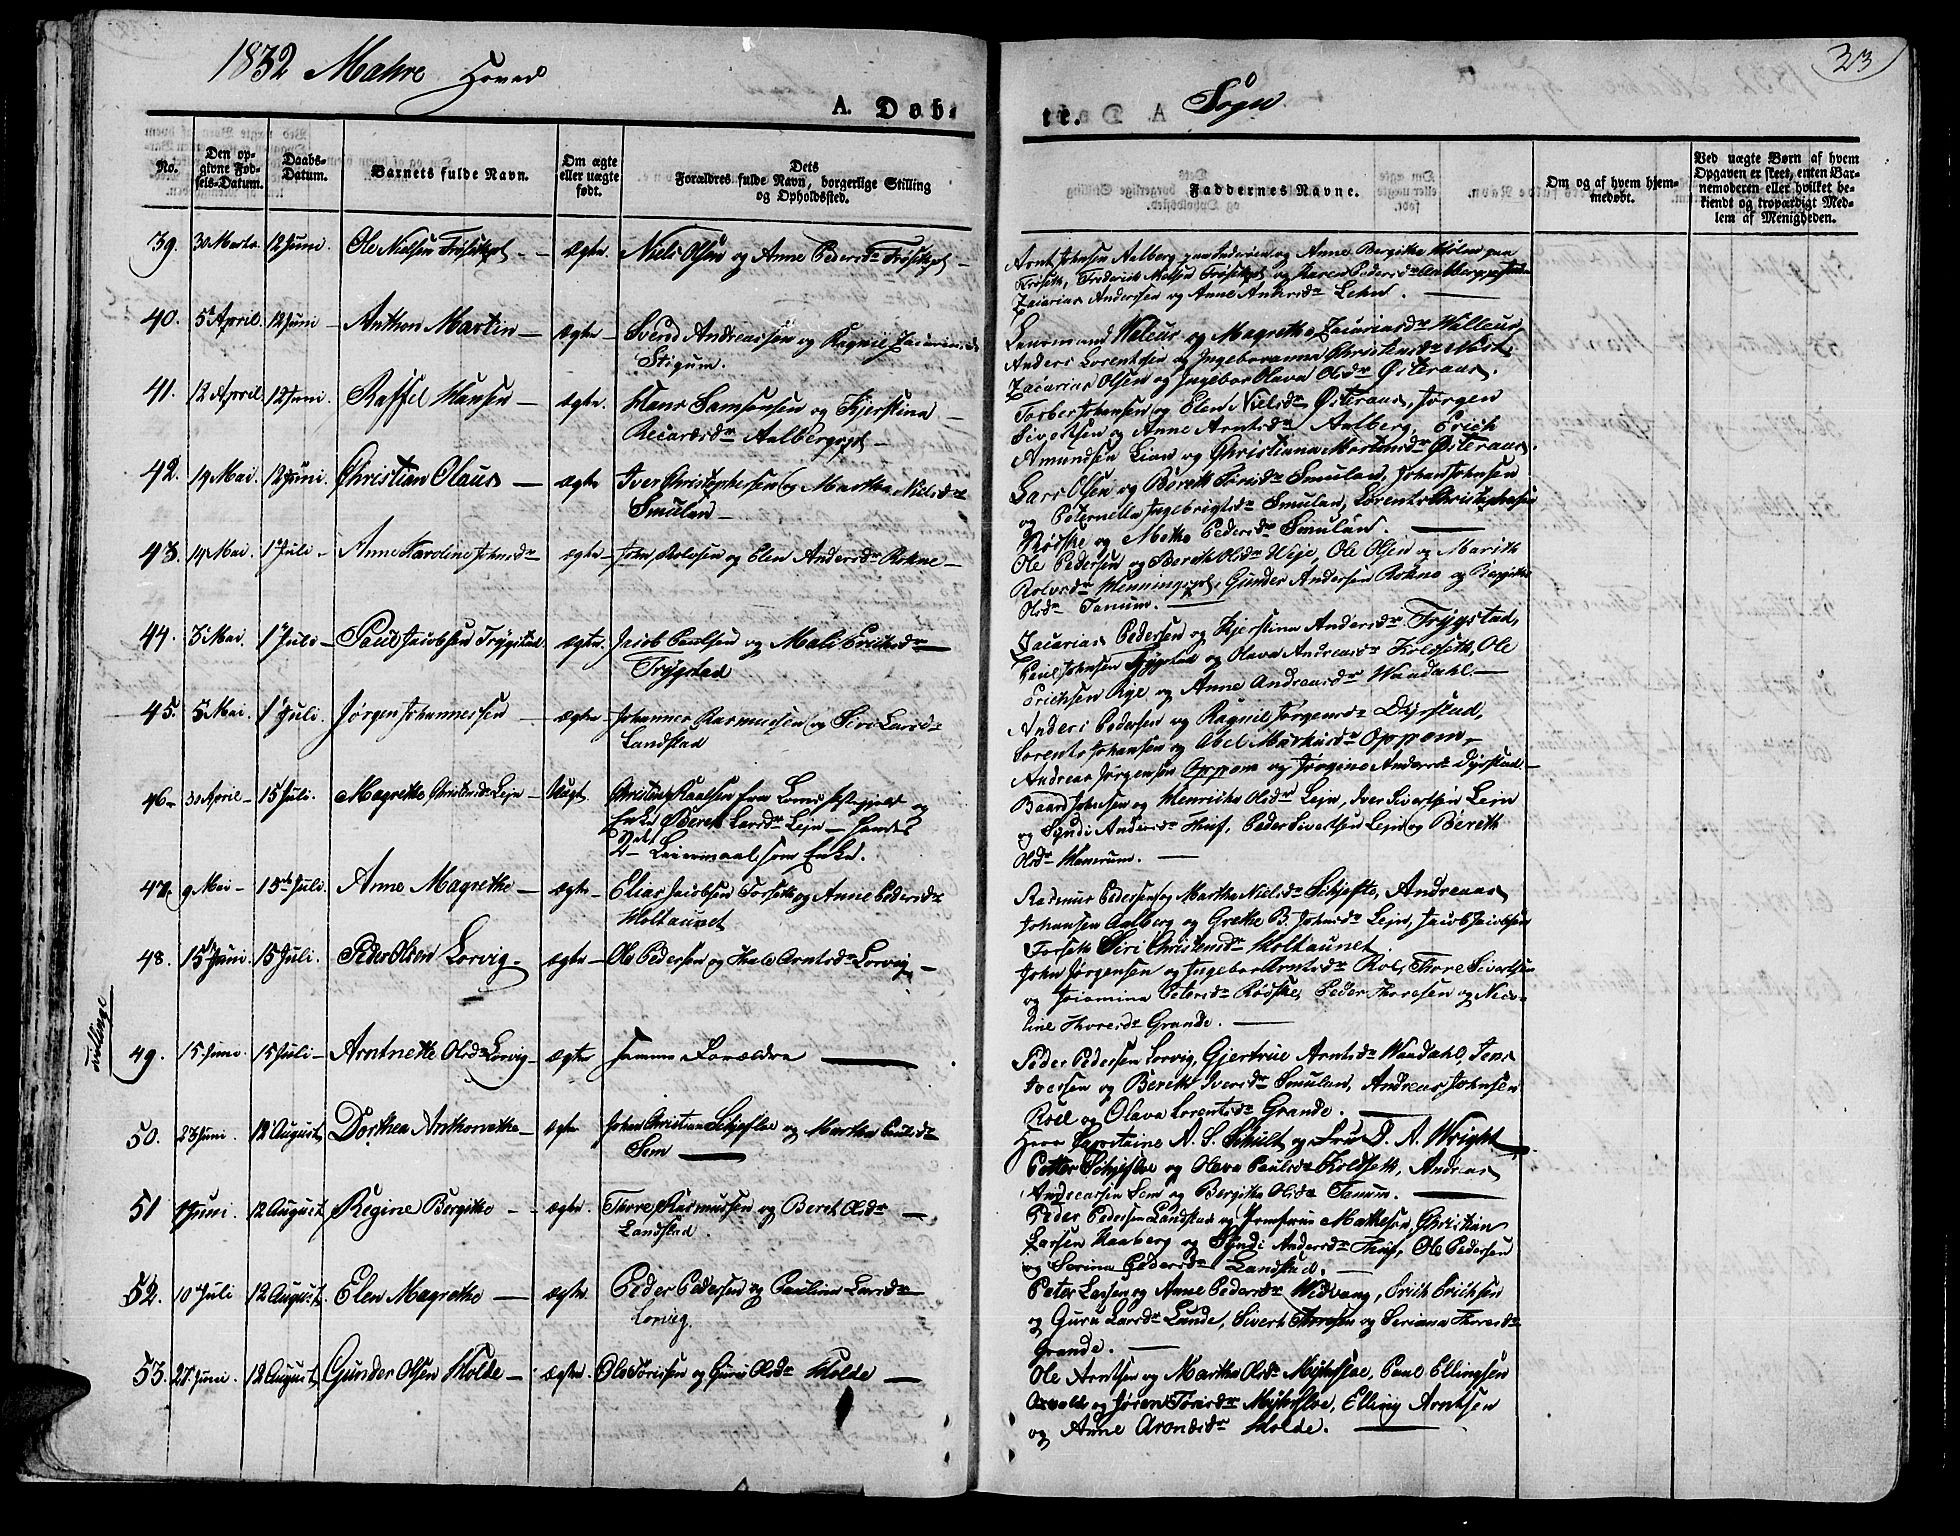 1832 Mahre Hoved
Sogn
23
A. Døb-
te.
No.
Den op-
givne Fød-
sels-Datum.
Daabs-
Datum.
Barnets fulde Navn.
Om ægte
eller uægte
født.
Dets
Forældres fulde Navn, borgerlige Stilling
og Opholdssted.
Faddernes Navne.
Om og af hvem hjem-
medøbt.
Ved uægte Børn af hvem
Opgaven er skeet, enten Bar-
nemoderen eller hvilket be-
kiendt og troværdigt Med-
lem af Menigheden.
39. 30 Marts 12 Juni Ole Nielsen ægte Niels Olsen og Anne Pedersdr
Arnt Johnsen Aalberg og Anne Bergithe
og Karen Pedersdr
Zacarias Andersen og Anne Andersdr
40. 5 April 12 Juni Anthon Martin ægte Svend Andreassen og Ragnil
Stigum.
og Magrethe Zacariasdr
Anders Lorentsen og Christensdr
Zacarias Olsen og Ingebor Olava Olsdr Østeraas.
41. 12 April 12 Juni Raffel Hansen ægte Hans Samsonsen og Kjerstina
Aalberg
Torber Johansen og Elen Nielsdr Østeraas, Jørgen
Sivertsen og Anne Arntsdr Aalberg, Erich
Amundsen og Christiana Mortensdr Østeraas
42. 19 Mai 12 Juni Christian Olaus ægte Iver Christophersen og Martha Nielsdr
Smulan
Lars Olsen og Bereth Smulan, Johan Johnsen
og Peternella Ingebrigtsdr Smulan, Lorents Christophersen
Rødske og Mette Pedersdr Smulan.
43. 14 Mai 1 Juli Anne Karoline Johnsdr ægte John Rolvsen og Elen Andersdr Rokne
Ole Pedersen og Bereth Olsdr Veje, Ole Olsen og Marith
Rolvsdr Gunder Andersen Rokne og Bergithe
Olsdr Tanum.
44. 3 Mai 1 Juli Paul Jacobsen Trygstad ægte Jacob Paulsen og Mali Erichsdr
Trygstad
Zacarias Pedersen og Kjerstina Andersdr Trygstad,
Paul Johnsen Trygstad og Olava Andreasdr Koldseth, Ole
Erichsen Rye og Anne Andreasdr Waadahl
45. 5 Mai 1 Juli Jørgen Johannessen ægte Johannes Rasmussen og Siri Larsdr
Landstad
Anders Pedersen og Ragnil Jørgensdr Dyrstad,
Lorents Johansen og Abel Markusdr Oppem
Andreas Jørgensen Oppem og Jørgine Andersdr Dyrstad
46. 30 April 15 Juli. Magrethe Christensdr Lejn Uægt. Christen Paulsen fra
Enke Bereth Larsdr Lejn
Leiermaal som Enke.
Baard Johnsen og Henricha Olsdr Lejn, Iver Sivertsen Lejn
og Syndi Andersdr Huf, Peder Sivertsen Lejn og Bereth
Olsdr
47. 9 Mai 15 Juli Anne Magrethe ægte Elias Jacobsen Forseth og Anne Pedersdr
Holtaunet
Rasmus Pedersen og Martha Nielsdr Schjefte, Andreas
Johansen Aalberg og Grethe B. Johnsdr Lejn, Jacob Jacobsen
Forseth Siri Christensdr Holtaunet.
tvillinge
48. 15 Juni 15 Juli. Peder Olsen Lorvig. ægte Ole Pedersen og Arntsdr Lorvig
John Jørgensen og Ingebor Arntsdr Roel, Thore Sivertsen
og Petersdr Rødske, Peder Thoresen og
Thoresdr Grande.
49. 15 Juni 15 Juli Arntnette Olsdr Lorvig ægte Samme Forældre
Peder Pedersen Lorvig, Gjertrue Arntsdr Waadahl, Jens
Iversen og Bereth Iversdr Smulan, Andreas Johnsen
Roel og Olava Lorentsdr Grande.
50. 23 Juni 12 August Dorthea Anthonette ægte Johan Christian Schjefte og Martha Paulsdr
Sem
Herr Capoitaine A. S. Schult og Fru D. A. Wright
Petter Schjefte og Olava Paulsdr Koldseth, Andreas
Andreassen Sem og Bergithe Olsdr Tanum.
51 1 Juni. 12 August Regine Bergithe ægte Thore Rasmussen og Beret Olsdr
Landstad.
Peder Pedersen Landstad og Jomfrue Mathesen, Christian
Larsen Haaberg og Syndi Andersdr Huf, Ole Pedersen
og Serina Pedersdr Landstad.
52. 10 Juli 12 August Elen Magrethe ægte Peder Pedersen og Paulina Larsdr
Lorvig.
Peter Larsen og Anne Pedersdr Widvang, Erich Erichsen
og Guru Larsdr Lunde, Sivert Thoresen og Seriana Thoresdr
Grande.
53. 27 Juni. 12 August Gunder Olsen Holde ægte Ole Torrisen og Guru Olsdr Holde
Ole Arntsen og Martha Olsdr Paul Ellingsen
og Jøren Elling Arntsen
og Anne Aronsdr Holde.